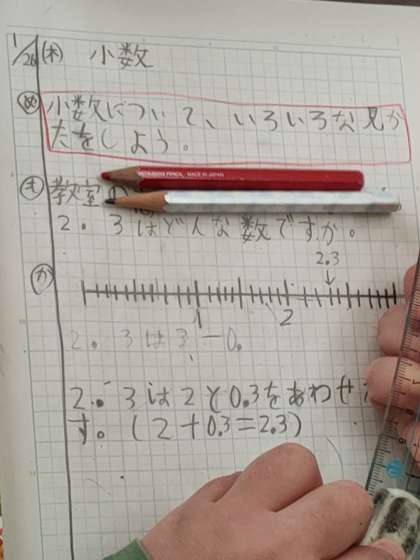 1/26 (木) 小数
め 小数について、いろいろな見か
たをしよう。
MITSUBISHI PENCIL MADE IN JAPAN
も 教室
2.3はどんな数ですか。
2.3
↓
か
1 2
2.3は3-0.
2.3は2と0.3をあわせ
す。(2+0.3=2.3)